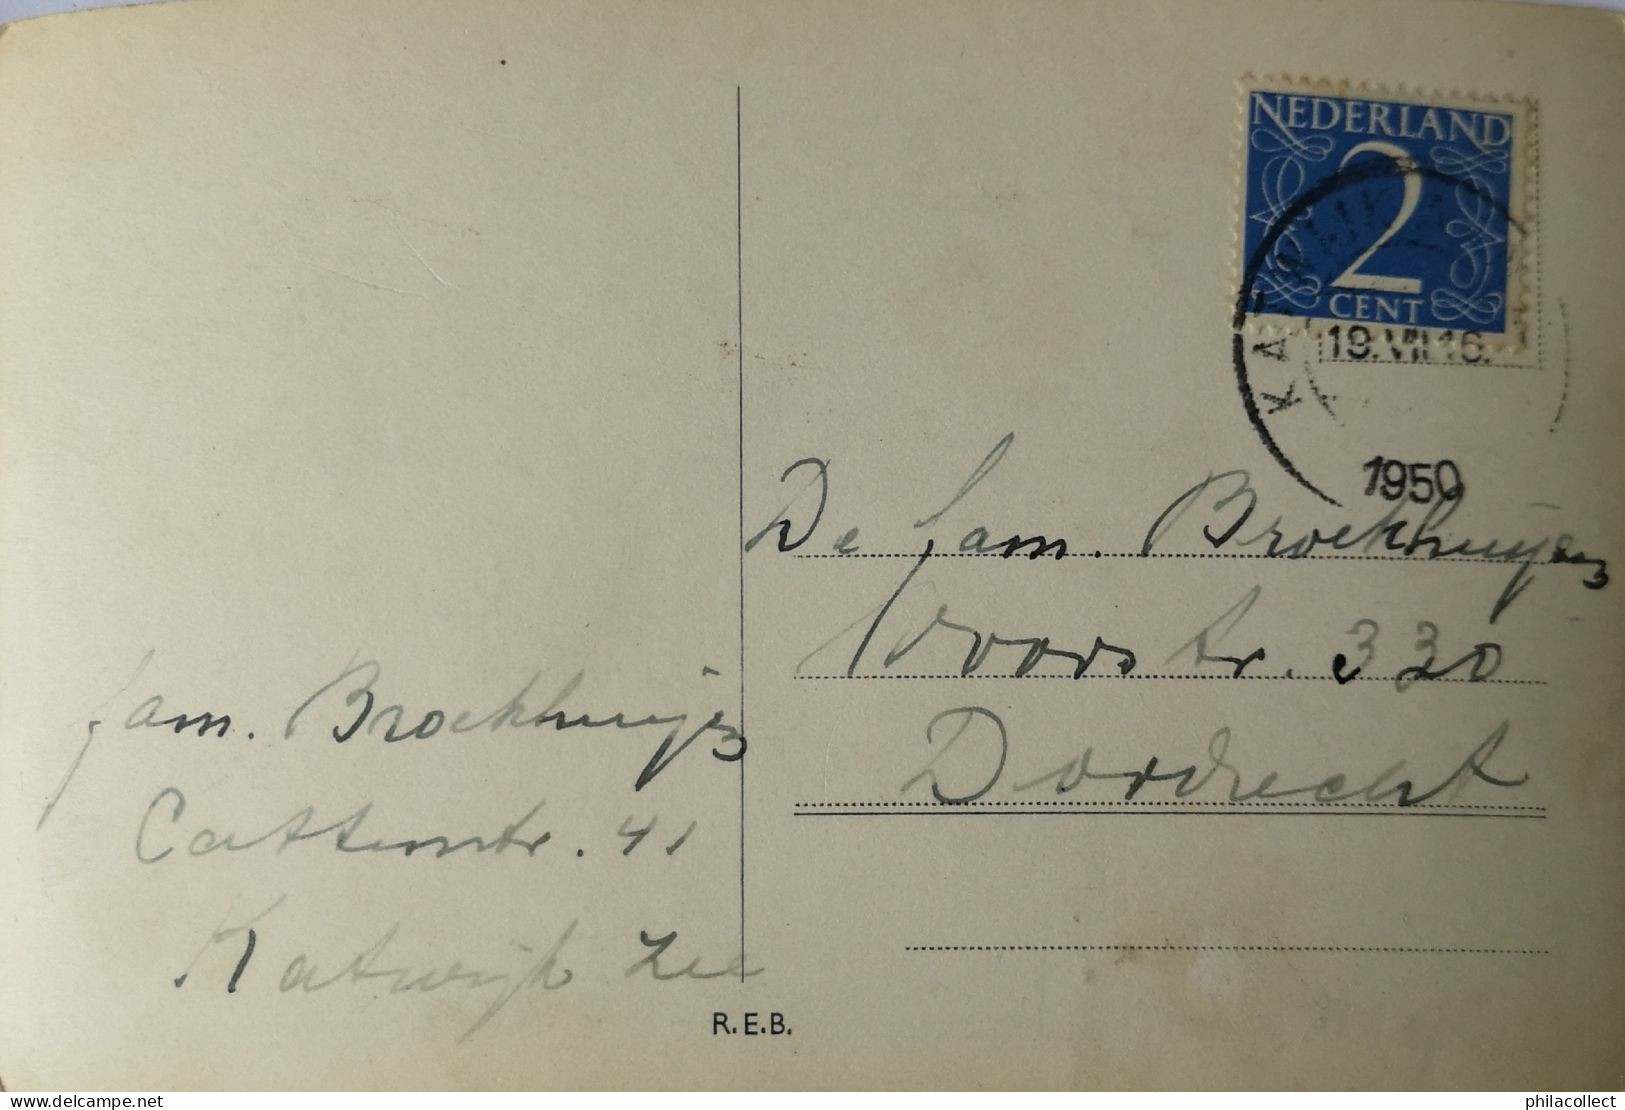 NEDERLAND
2
CENT
KATWIJK A
19.VII 16.
1950
De fam. Broekhuijzen
Voorstr. 330
Dordrecht
fam. Broekhuijzen
Cattenstr. 41
Katwijk Zee
R.E.B.
philacollect